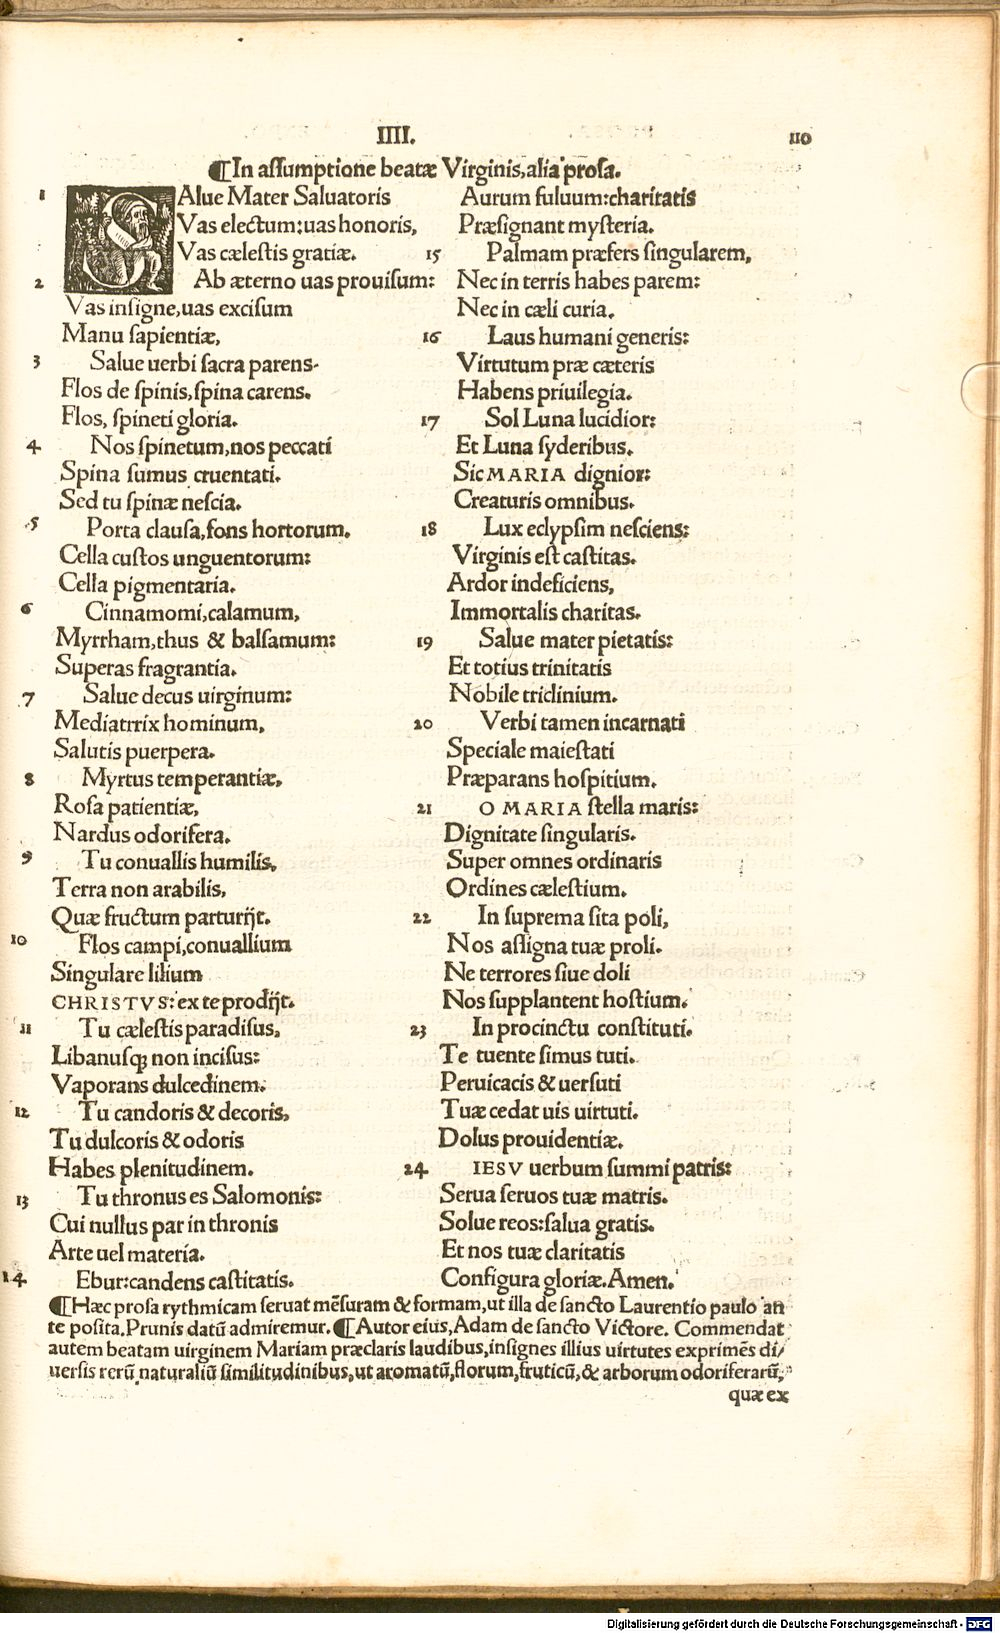 IIII.
110
¶In aſſumptione beatæ Virginis,alia proſa.
1 SAlue Mater Saluatoris
Vas electum:uas honoris,
Vas cæleſtis gratiæ.
2 Ab æterno uas prouiſum:
Vas inſigne,uas exciſum
Manu ſapientiæ,
3 Salue uerbi ſacra parens.
Flos de ſpinis,ſpina carens.
Flos, ſpineti gloria.
4 Nos ſpinetum,nos peccati
Spina ſumus cruentati.
Sed tu ſpinæ neſcia.
5 Porta clauſa,fons hortorum.
Cella cuſtos unguentorum:
Cella pigmentaria.
6 Cinnamomi,calamum,
Myrrham,thus & balſamum:
Superas fragrantia.
7 Salue decus uirginum:
Mediatrrix hominum,
Salutis puerpera.
8 Myrtus temperantiæ,
Roſa patientiæ,
Nardus odorifera.
9 Tu conuallis humilis,
Terra non arabilis,
Quæ fructum parturijt.
10 Flos campi,conuallium
Singulare lilium
CHRISTVS:ex te prodijt.
11 Tu cæleſtis paradiſus,
Libanuſq; non inciſus:
Vaporans dulcedinem.
12 Tu candoris & decoris,
Tu dulcoris & odoris
Habes plenitudinem.
13 Tu thronus es Salomonis:
Cui nullus par in thronis
Arte uel materia.
14 Ebur:candens caſtitatis.
Aurum fuluum:charitatis
Præſignant myſteria.
15 Palmam præfers ſingularem,
Nec in terris habes parem:
Nec in cæli curia.
16 Laus humani generis:
Virtutum præ cæteris
Habens priuilegia.
17 Sol Luna lucidior:
Et Luna ſyderibus.
Sic MARIA dignior:
Creaturis omnibus.
18 Lux eclypſim neſciens:
Virginis eſt caſtitas.
Ardor indeficiens,
Immortalis charitas.
19 Salue mater pietatis:
Et totius trinitatis
Nobile triclinium.
20 Verbi tamen incarnati
Speciale maieſtati
Præparans hoſpitium.
21 O MARIA ſtella maris:
Dignitate ſingularis.
Super omnes ordinaris
Ordines cæleſtium.
22 In ſuprema ſita poli,
Nos aſſigna tuæ proli.
Ne terrores ſiue doli
Nos ſupplantent hoſtium.
23 In procinctu conſtituti.
Te tuente ſimus tuti.
Peruicacis & uerſuti
Tuæ cedat uis uirtuti.
Dolus prouidentiæ.
24 IESV uerbum ſummi patris:
Serua ſeruos tuæ matris.
Solue reos:ſalua gratis.
Et nos tuæ claritatis
Configura gloriæ.Amen.
¶Hæc proſa rythmicam ſeruat mēſuram & formam,ut illa de ſancto Laurentio paulo an
te poſita.Prunis datū admiremur.¶Autor eius,Adam de ſancto Victore. Commendat
autem beatam uirginem Mariam præclaris laudibus,inſignes illius uirtutes exprimēs di/
uerſis rerū naturaliū ſimilitudinibus,ut aromatū,florum,fruticū,& arborum odoriferarū,
quæ ex
Digitalisierung gefördert durch die Deutsche Forschungsgemeinschaft - DFG